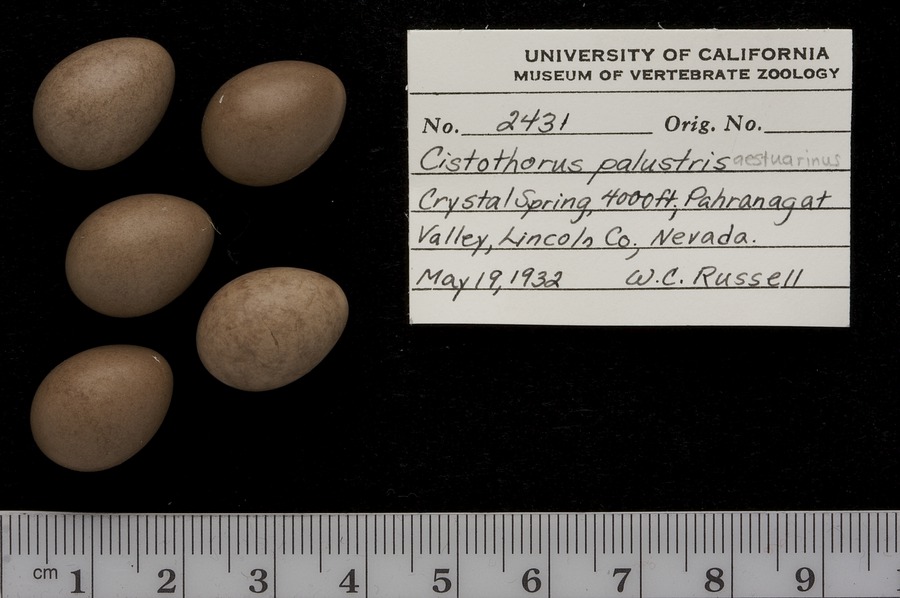 UNIVERSITY OF CALIFORNIA
MUSEUM OF VERTEBRATE ZOOLOGY
No. 2431 Orig. No.
Cistothorus palustris aestuarinus
Crystal Spring, 4000ft, Pahranagat
Valley, Lincoln Co, Nevada.
May 19, 1932 W.C. Russell
cm 1 2 3 4 5 6 7 8 9 1